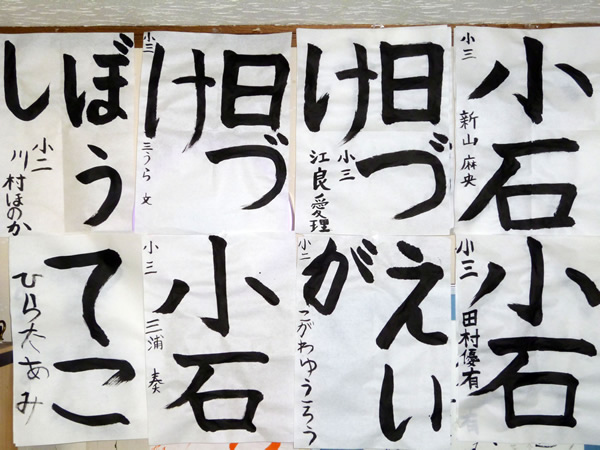 小石
小三
新山 麻央
日づ
け
小三
江良愛理
日づ
け
小三
三うら 文
ぼう
し
小二
川村ほのか
小石
小三
田村優有
えい
が
小二
こがわゆうころう
小石
小三
三浦 奏
てこ
ひら太あみ